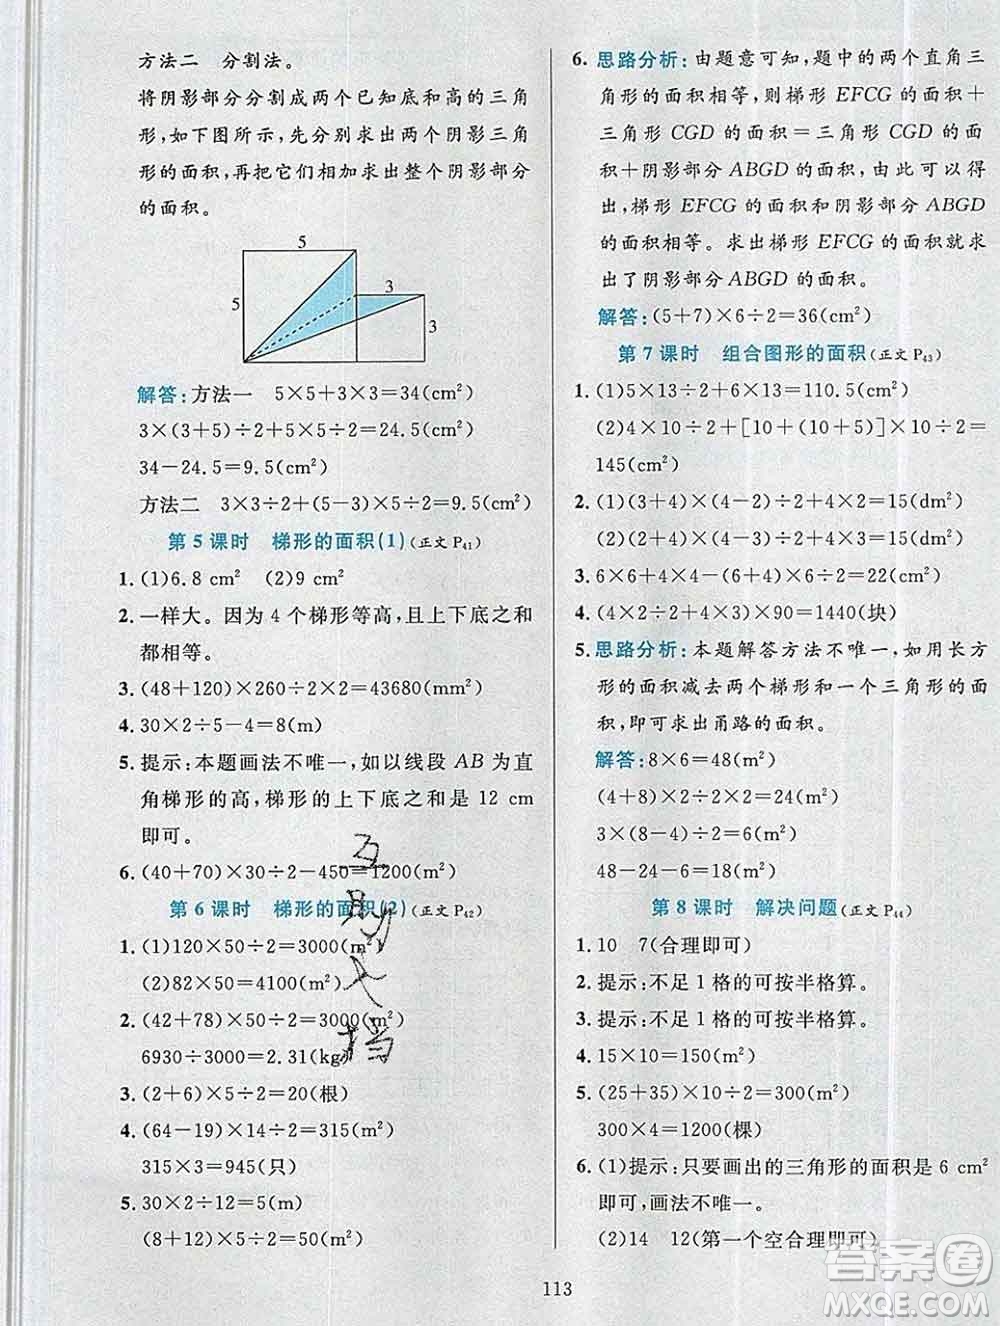 方法二　分割法。
将阴影部分分割成两个已知底和高的三角
形，如下图所示，先分别求出两个阴影三角
形的面积，再把它们相加求出整个阴影部分
的面积。
5
5
3
3
解答:方法一　5×5+3×3=34(cm²)
3×(3+5)÷2+5×5÷2=24.5(cm²)
34-24.5=9.5(cm²)
方法二　3×3÷2+(5-3)×5÷2=9.5(cm²)
第 5 课时　梯形的面积(1)(正文 P₄₁)
1. (1)6.8 cm²　(2)9 cm²
2. 一样大。因为 4 个梯形等高,且上下底之和
都相等。
3. (48+120)×260÷2=43680(mm²)
4. 30×2÷5-4=8(m)
5. 提示:本题画法不唯一,如以线段 AB 为直
角梯形的高，梯形的上下底之和是 12 cm
即可。
6. (40+70)×30÷2-450=1200(m²)
第 6 课时　梯形的面积(2)(正文 P₄₂)
1. (1)120×50÷2=3000(m²)
(2)82×50=4100(m²)
2. (42+78)×50÷2=3000(m²)
6930÷3000=2.31(kg)
3. (2+6)×5÷2=20(根)
4. (64-19)×14÷2=315(m²)
315×3=945(只)
5. 30×2÷12=5(m)
(8+12)×5÷2=50(m²)
互
助
文
档
6. 思路分析:由题意可知,题中的两个直角三
角形的面积相等，则梯形 EFCG 的面积+
三角形 CGD 的面积=三角形 CGD 的面
积+阴影部分 ABGD 的面积，由此可以得
出,梯形 EFCG 的面积和阴影部分 ABGD
的面积相等。求出梯形 EFCG 的面积就求
出了阴影部分 ABGD 的面积。
解答:(5+7)×6÷2=36(cm²)
第 7 课时　组合图形的面积(正文 P₄₃)
1. (1)5×13÷2+6×13=110.5(cm²)
(2)4×10÷2+[10+(10+5)]×10÷2=
145(cm²)
2. (1)(3+4)×(4-2)÷2+4×2=15(dm²)
(2)(2+4)×(4-3)÷2+4×3=15(dm²)
3. 6×6+4×4-(6+4)×6÷2=22(cm²)
4. (4×2÷2+4×3)×90=1440(块)
5. 思路分析:本题解答方法不唯一,如用长方
形的面积减去两个梯形和一个三角形的面
积,即可求出甬路的面积。
解答:8×6=48(m²)
(4+8)×2÷2×2=24(m²)
3×(8-4)÷2=6(m²)
48-24-6=18(m²)
第 8 课时　解决问题(正文 P₄₄)
1. 10　7(合理即可)
2. 提示:不足 1 格的可按半格算。
3. 提示:不足 1 格的可按半格算。
4. 15×10=150(m²)
5. (25+35)×10÷2=300(m²)
300×4=1200(棵)
6. (1)提示:只要画出的三角形的面积是 6 cm²
即可,画法不唯一。
(2)14　12(第一个空合理即可)
113
答案圈
MXQE.COM